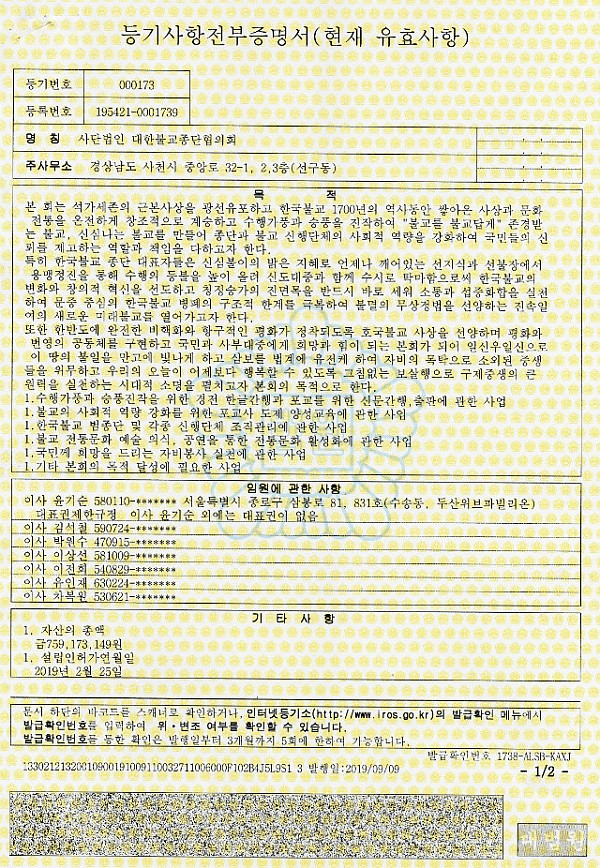 등기사항전부증명서(현재 유효사항)
등기번호 000173
등록번호 195421-0001739
명 칭 사단법인 대한불교종단협의회
주사무소 경상남도 사천시 중앙로 32-1, 2,3층(선구동)
목 적
본 회는 석가세존의 근본사상을 광선유포하고 한국불교 1700년의 역사동안 쌓아온 사상과 문화
전통을 온전하게 창조적으로 계승하고 수행가풍과 승풍을 진작하여 "불교를 불교답게" 존경받
는 불교, 신심나는 불교를 만들어 종단과 불교 신행단체의 사회적 역량을 강화하여 국민들의 신
뢰를 제고하는 역할과 책임을 다하고자 한다.
특히 한국불교 종단 대표자들은 신심불이의 밝은 지혜로 언제나 깨어있는 선지식과 선불장에서
용맹정진을 통해 수행의 등불을 높이 올려 신도대중과 함께 수시로 탁마함으로써 한국불교의
변화와 창의적 혁신을 선도하고 칭징승가의 진면목을 반드시 바로 세워 소통과 섭중화합을 실천
하여 문중 중심의 한국불교 병폐의 구조적 한계를 극복하여 불멸의 무상정법을 선양하는 진속일
여의 새로운 미래불교를 열어가고자 한다.
또한 한반도에 완전한 비핵화와 항구적인 평화가 정착되도록 호국불교 사상을 선양하며 평화와
번영의 공동체를 구현하고 국민과 사부대중에게 희망과 힘이 되는 본회가 되어 임신우일신으로
이 땅의 불일을 만고에 빛나게 하고 삼보를 법계에 유전케 하여 자비의 목탁으로 소외된 중생
들을 위무하고 우리의 오늘이 어제보다 행복할 수 있도록 그침없는 보살행으로 구제중생의 큰
원력을 실천하는 시대적 소명을 펼치고자 본회의 목적으로 한다.
1.수행가풍과 승풍진작을 위한 경전 한글간행과 포교를 위한 신문간행,출판에 관한 사업
1.불교의 사회적 역량 강화를 위한 포교사 도제 양성교육에 관한 사업
1.한국불교 범종단 및 각종 신행단체 조직관리에 관한 사업
1.불교 전통문화 예술 의식, 공연을 통한 전통문화 활성화에 관한 사업
1.국민께 희망을 드리는 자비봉사 실천에 관한 사업
1.기타 본회의 목적 달성에 필요한 사업
임원에 관한 사항
이사 윤기순 580110-******* 서울특별시 종로구 삼봉로 81, 831호(수송동, 두산위브파빌리온)
대표권제한규정 이사 윤기순 외에는 대표권이 없음
이사 김석철 590724-*******
이사 박원수 470915-*******
이사 이상선 581009-*******
이사 이전희 540829-*******
이사 유인재 630224-*******
이사 차복원 530621-*******
기 타 사 항
1. 자산의 총액
금759,173,149원
1. 설립인허가연월일
2019년 2월 25일
문서 하단의 바코드를 스캐너로 확인하거나, 인터넷등기소(http://www.iros.go.kr)의 발급확인 메뉴에서
발급확인번호를 입력하여 위·변조 여부를 확인할 수 있습니다.
발급확인번호를 통한 확인은 발행일부터 3개월까지 5회에 한하여 가능합니다.
발급확인번호 1738-ALSB-KAXJ
13302121320010900191009110032711006000F102B4J5L9S1 3 발행일:2019/09/09
- 1/2 -
대법원